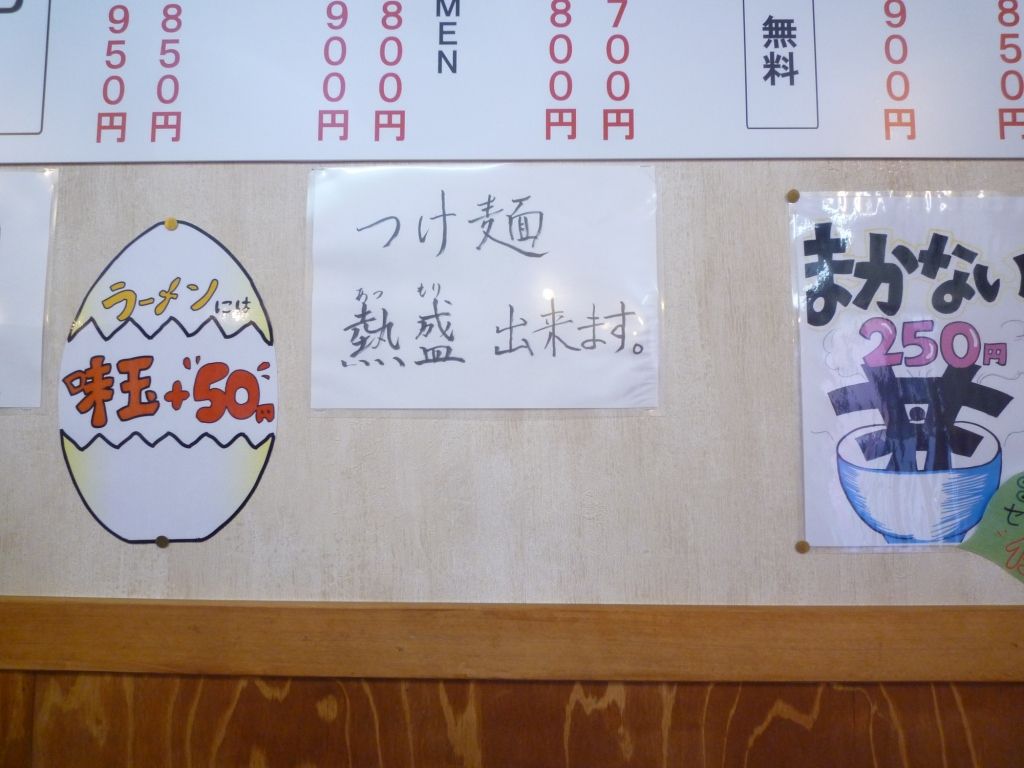 950円
850円
900円
800円
MEN
800円
700円
無料
900円
850円
ラーメンには
味玉+50円
つけ麺
あつ もり
熱盛 出来ます。
まかない
250円
丼